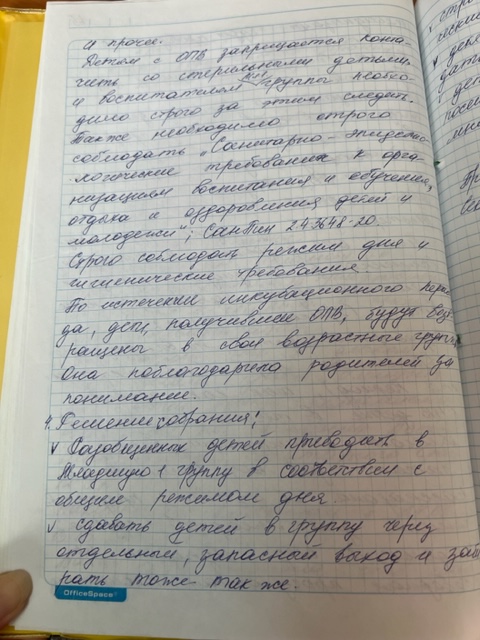 и прочее.
Детям с ОПВ запрещается конта-
чить со стерильными детьми
и воспитателям группы необхо-
димо строго за этим следит.
Также необходимо строго
соблюдать „Санитарно-эпидемио-
логические требования к орга-
низациям воспитания и обучения,
отдыха и оздоровления детей и
молодежи"; СанПин 2.4.3648-20.
Строго соблюдать режим дня и
гигиенические требования.
По истечении инкубационного перио-
да, дети, получившие ОПВ, будут воз-
ращены в свои возрастные группы
Она поблагодарила родителей за
понимание.
4. Решение собрания:
v Разобщенных детей приводить в
Младшую 1 группу в соответствии с
общим режимом дня
v сдавать детей в группу через
отдельный, запасный выход и заби
рать тоже так же.
OfficeSpace